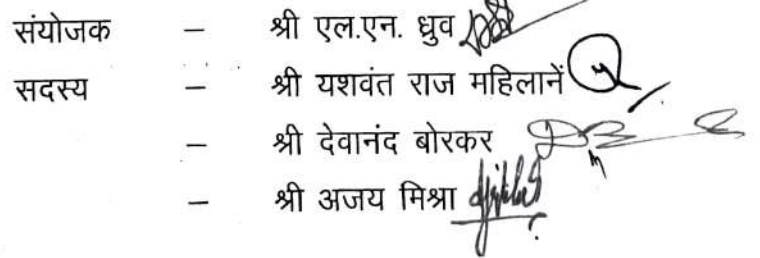 संयोजक – श्री एल.एन. ध्रुव
सदस्य – श्री यशवंत राज महिलानें
– श्री देवानंद बोरकर
– श्री अजय मिश्रा